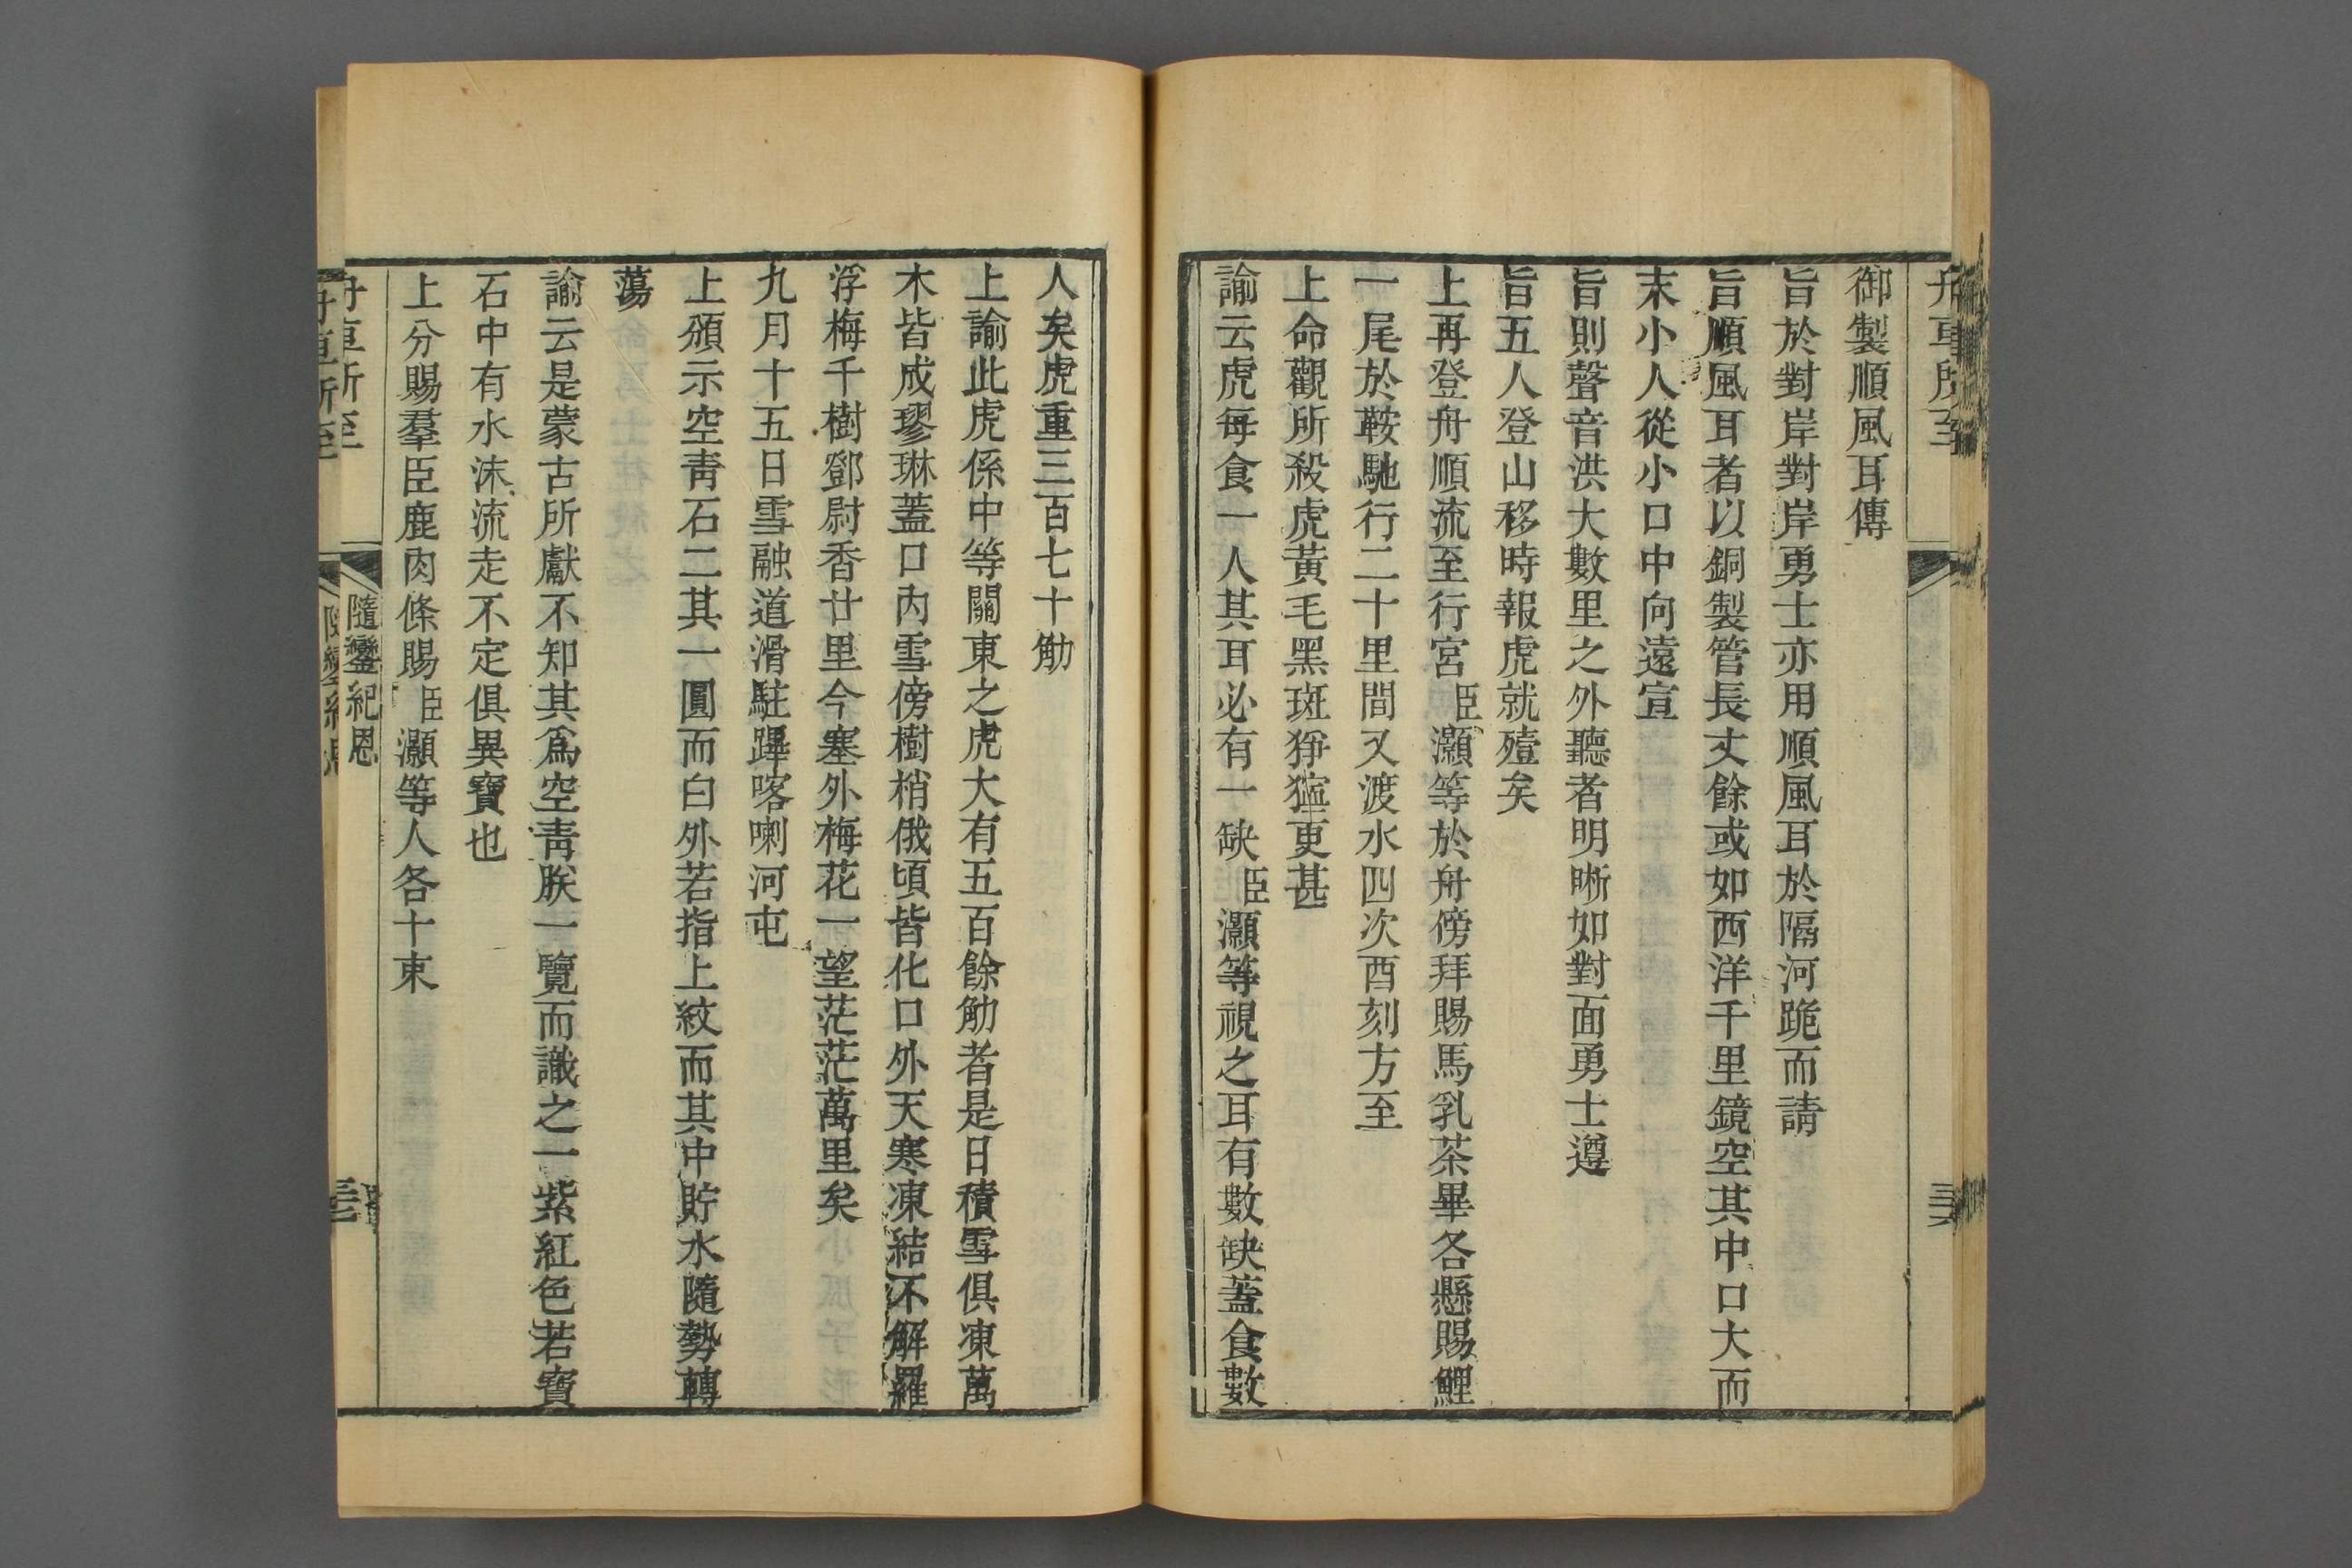 舟車所至
三六
御製順風耳傳
旨於對岸對岸勇士亦用順風耳於隔河跪而請
旨順風耳者以銅製管長丈餘或如西洋千里鏡空其中口大而
末小人從小口中向遠宣
旨則聲音洪大數里之外聽者明晰如對面勇士遵
旨五人登山移時報虎就殪矣
上再登舟順流至行宮臣灝等於舟傍拜賜馬乳茶畢各懸賜鯉
一尾於鞍馳行二十里間又渡水四次酉刻方至
上命觀所殺虎黃毛黑斑猙獰更甚
諭云虎每食一人其耳必有一缺臣灝等視之耳有數缺蓋食數
人矣虎重三百七十觔
上諭此虎係中等關東之虎大有五百餘觔者是日積雪俱凍萬
木皆成璆琳蓋口內雪傍樹梢俄頃皆化口外天寒凍結不解羅
浮梅千樹鄧尉香廿里今塞外梅花一望茫茫萬里矣
九月十五日雪融道滑駐蹕喀喇河屯
上頒示空靑石二其一圓而白外若指上紋而其中貯水隨勢轉
蕩
諭云是蒙古所獻不知其爲空靑朕一覽而識之一紫紅色若寶
石中有水沫流走不定俱異寶也
上分賜羣臣鹿肉條賜臣灝等人各十束
舟車所至
隨鑾紀恩